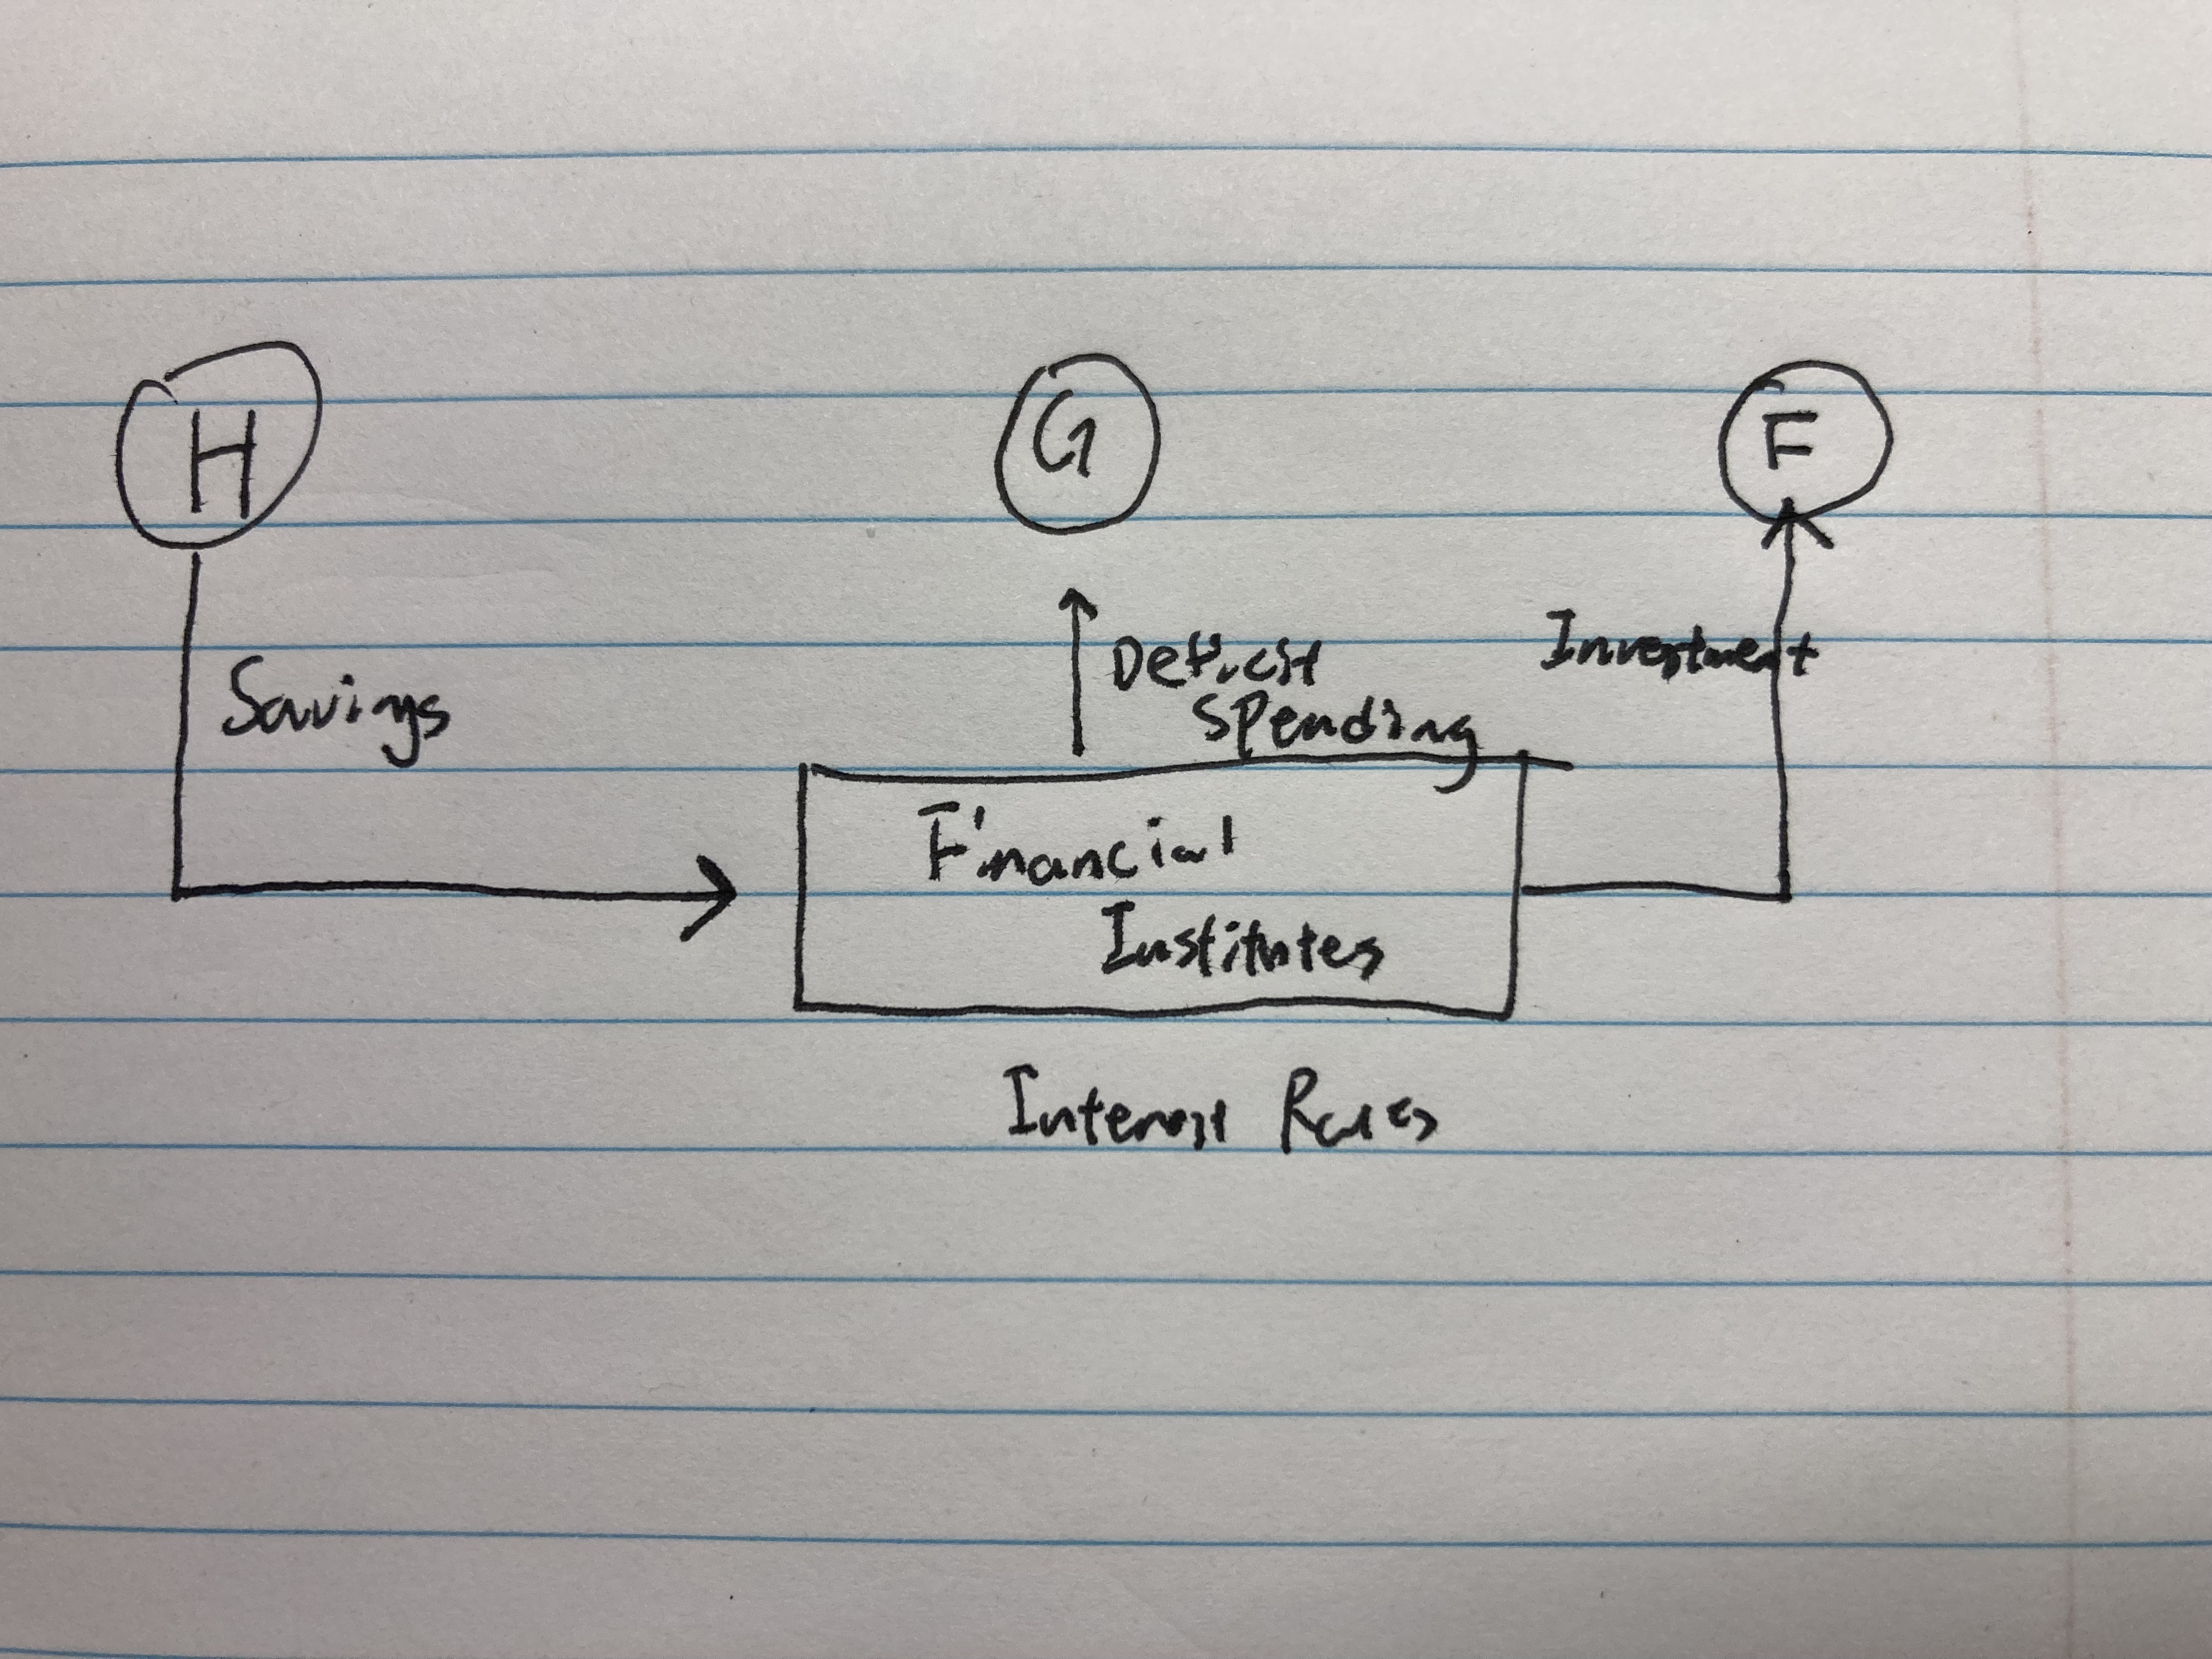 H
G
F
Savings
Deficit
Spending
Investment
Financial
Institutes
Interest Rates